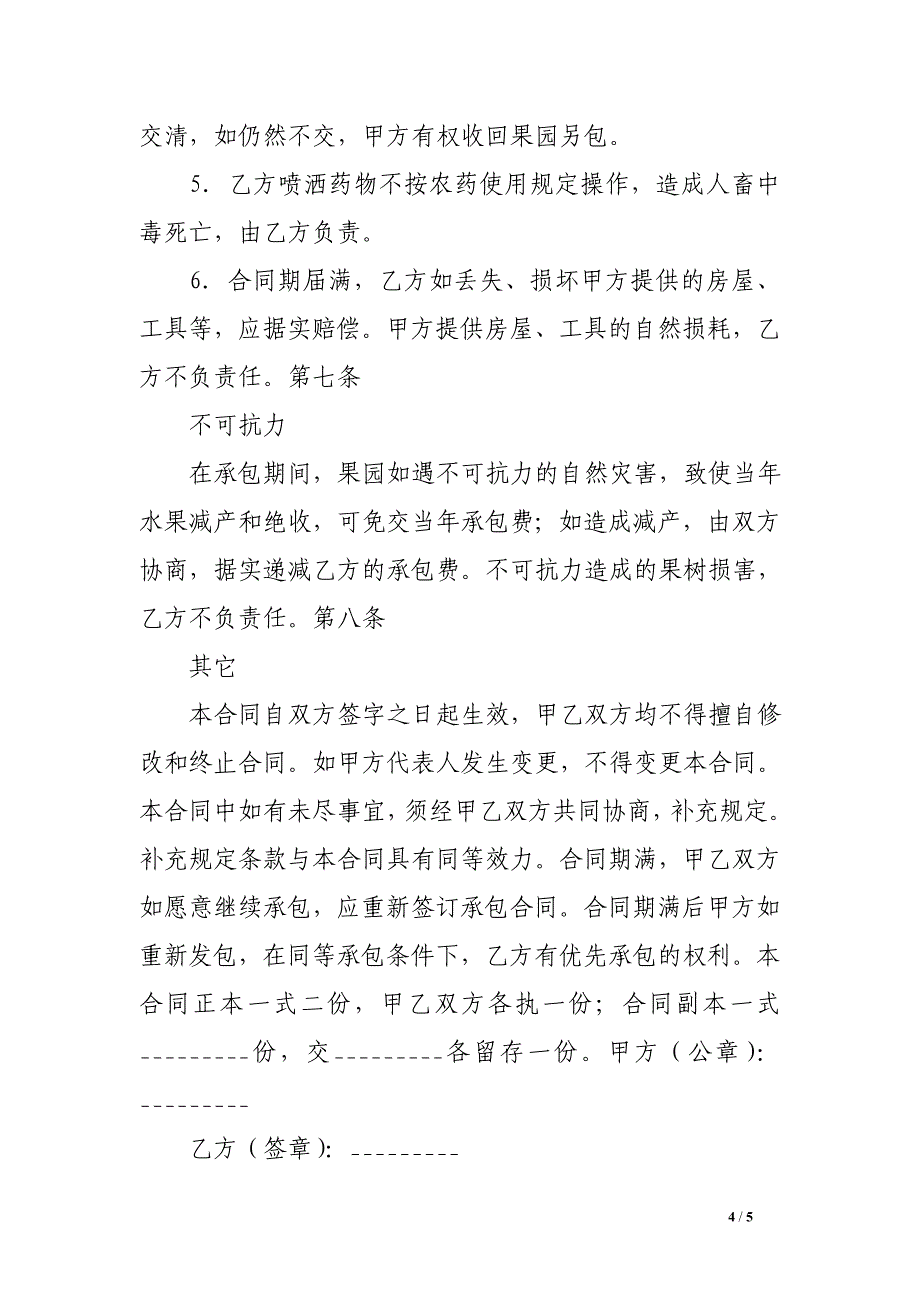 交清，如仍然不交，甲方有权收回果园另包。
5．乙方喷洒药物不按农药使用规定操作，造成人畜中
毒死亡，由乙方负责。
6．合同期届满，乙方如丢失、损坏甲方提供的房屋、
工具等，应据实赔偿。甲方提供房屋、工具的自然损耗，乙
方不负责任。第七条
不可抗力
在承包期间，果园如遇不可抗力的自然灾害，致使当年
水果减产和绝收，可免交当年承包费；如造成减产，由双方
协商，据实递减乙方的承包费。不可抗力造成的果树损害，
乙方不负责任。第八条
其它
本合同自双方签字之日起生效，甲乙双方均不得擅自修
改和终止合同。如甲方代表人发生变更，不得变更本合同。
本合同中如有未尽事宜，须经甲乙双方共同协商，补充规定。
补充规定条款与本合同具有同等效力。合同期满，甲乙双方
如愿意继续承包，应重新签订承包合同。合同期满后甲方如
重新发包，在同等承包条件下，乙方有优先承包的权利。本
合同正本一式二份，甲乙双方各执一份；合同副本一式
_________份，交_________各留存一份。甲方（公章）：
_________
乙方（签章）：_________
4 / 5